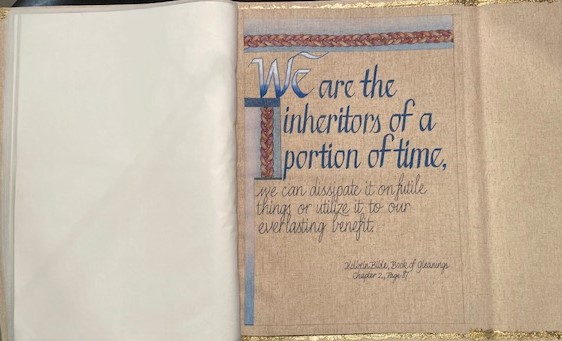 We are the
inheritors of a
portion of time,
we can dissipate it on futile
things or utilize it to our
everlasting benefit.
Kolbrin Bible, Book of Gleanings
Chapter 2, Page